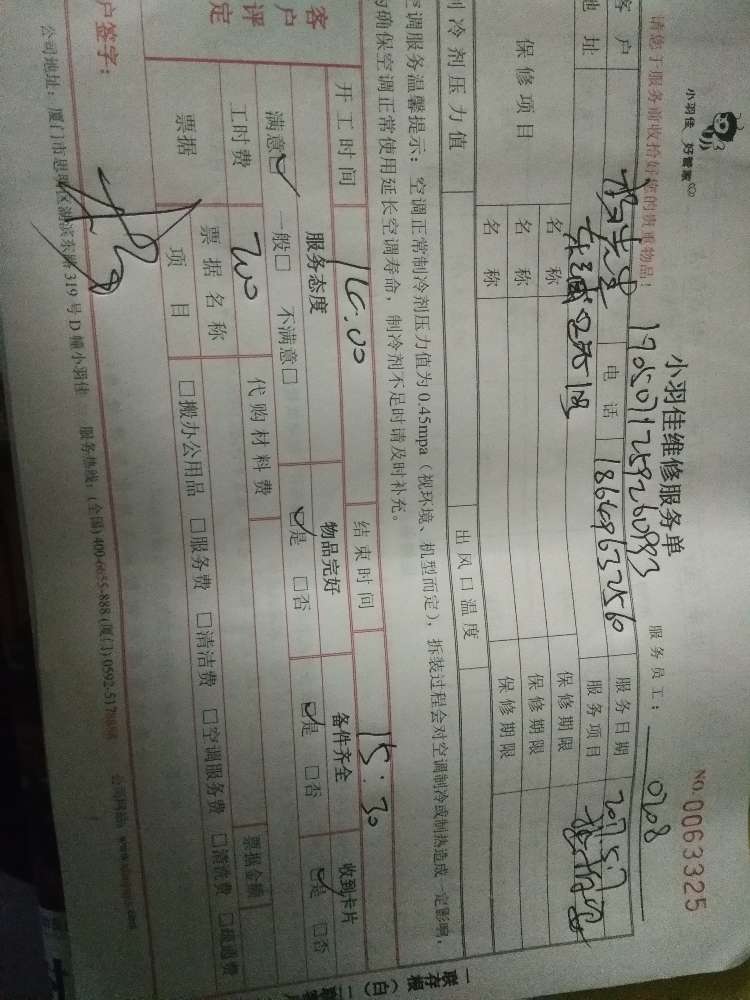 小羽佳 好管家
小羽佳维修服务单
NO.0063325
服务员工： 0208
请您于服务前收拾好您的贵重物品！
客户 电话 18649632560 服务日期 2017.5.7
地址 服务项目
保修项目 名称 保修期限
名称 保修期限
名称 保修期限
制冷剂压力值 出风口温度
空调服务温馨提示：空调正常制冷剂压力值为0.45mpa（视环境、机型而定），拆装过程会对空调制冷或制热造成一定影响，
为确保空调正常使用延长空调寿命，制冷剂不足时请及时补充。
开工时间 14:00 结束时间 15:30
客户评定 服务态度 物品完好 备件齐全 收到卡片
满意☑ 一般□ 不满意□ ☑是 □否 ☑是 □否 ☑是 □否
工时费 200 代购材料费 票据金额
票据 票据名称
项目 □搬办公用品 □服务费 □清洁费 □空调服务费 □清洗费 □疏通费
户签字：
公司地址：厦门市思明区湖滨东路319号D幢小羽佳 服务热线：(全国)400-6655-888(厦门)0592-5178888 公司网站：
一联存根（白）